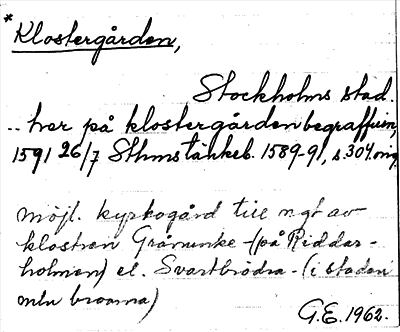 *Klostergården,
Stockholms stad.
.. her på klostergården begraffuin,
1591 26/7 Sthms tänkeb. 1589-91, s. 304 orig.
möjl. kyrkogård till ngt av
klostren Gråmunke- (på Riddar-
holmen) el. Svartbrödra- (i staden
mln broarna)
G.E. 1962.